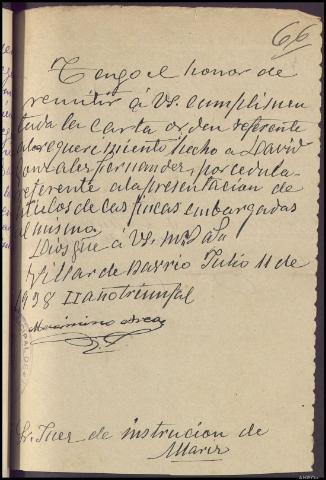 66
Tengo el honor de
remitir á VS. cumplimen
tada la carta orden referente
al requerimiento hecho a David
Gonzalez Fernandez, por cedula
referente a la presentacion de
titulos de las fincas embargadas
al mismo
Dios gûe á VS. ms. as.
Villar de Barrio Julio 11 de
1938 II año triunfal
Sr. Juez de instrucion de